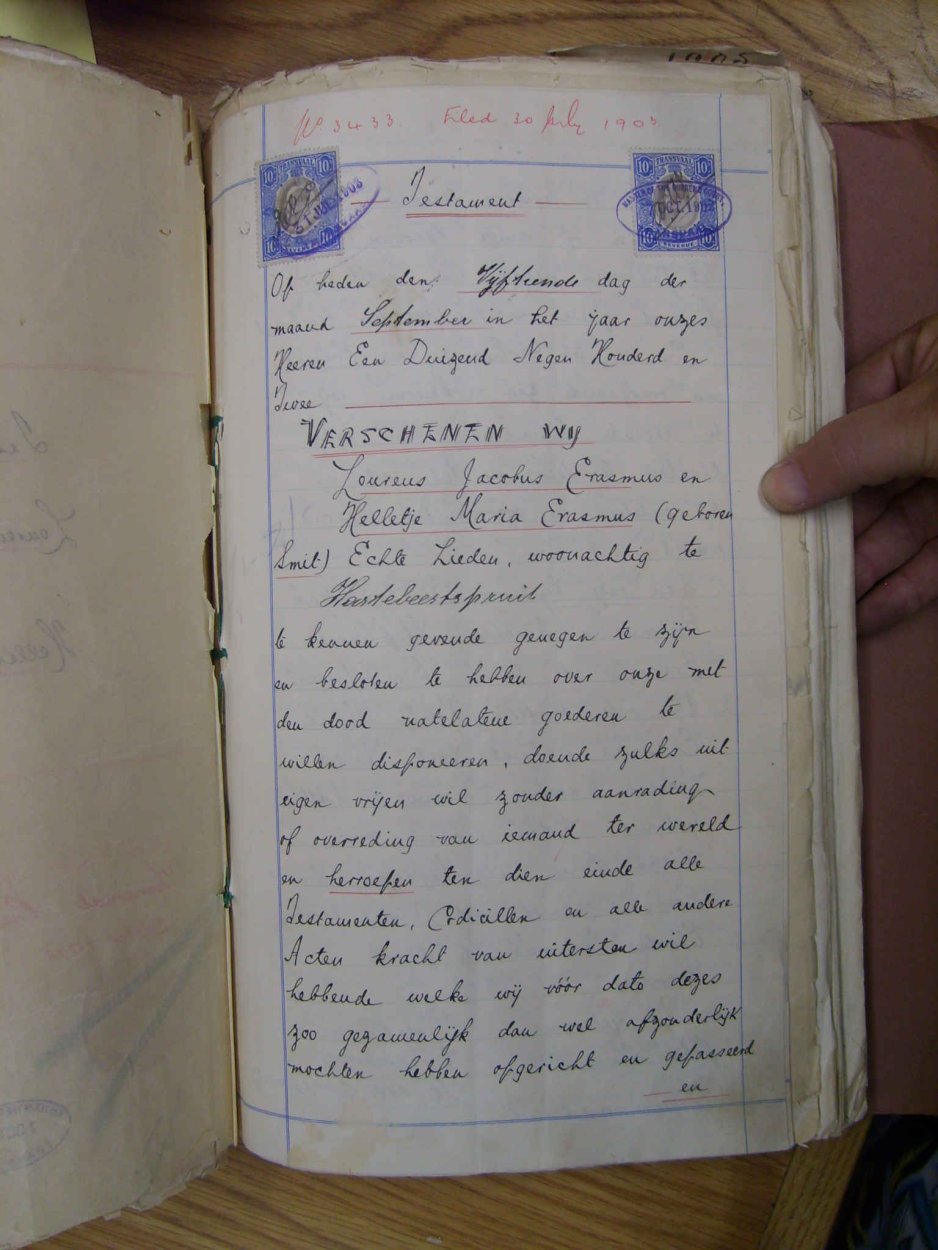 1903
No. 3433. Filed 30 July 1903.
TRANSVAAL
10/
10/
REVENUE
10/
10/
Testament
TRANSVAAL
10/
10/
OCT. 1903
REVENUE
10/
10/
Op heden den Vijftiende dag der
maand September in het jaar onzes
Heeren Een Duizend Negen Honderd en
Twee
VERSCHENEN WIJ
Lourens Jacobus Erasmus en
Helletje Maria Erasmus (geboren
Smit) Echte Lieden, woonachtig te
Hartebeestspruit
te kennen gevende genegen te zijn
en besloten te hebben over onze met
den dood natelatene goederen te
willen disponeeren, doende zulks uit
eigen vrijen wil zonder aanrading
of overreding van iemand ter wereld
en herroepen ten dien einde alle
Testamenten, Codicillen en alle andere
Acten kracht van uitersten wil
hebbende welke wij vóór dato dezes
zoo gezamenlijk dan wel afzonderlijk
mochten hebben opgericht en gepasseerd
en